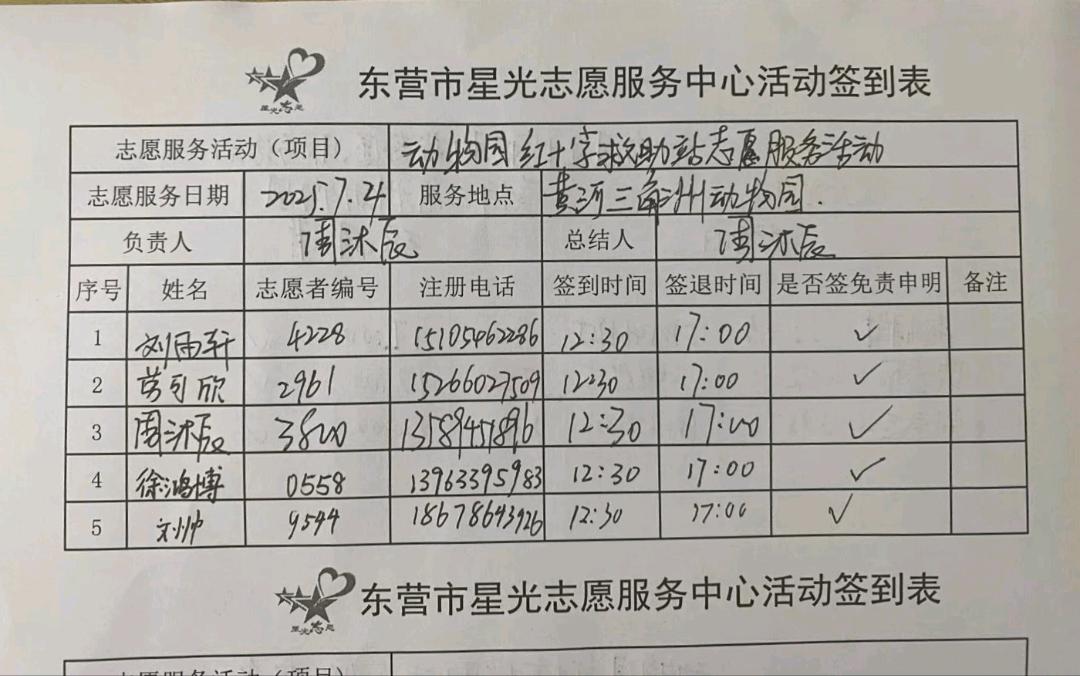 星光志愿
东营市星光志愿服务中心活动签到表
志愿服务活动（项目） 动物园红十字救助站志愿服务活动
志愿服务日期 2025.7.4 服务地点 黄河三角洲动物园.
负责人 周沐辰 总结人 周沐辰
序号 姓名 志愿者编号 注册电话 签到时间 签退时间 是否签免责申明 备注
1 刘雨轩 4228 15105462286 12:30 17:00 ✓
2 可欣 2961 15266027509 12:30 17:00 ✓
3 周沐辰 3800 13589451896 12:30 17:00 ✓
4 徐鸿博 0558 13963395983 12:30 17:00 ✓
5 刘帅 9544 18678643926 12:30 17:00 ✓
星光志愿
东营市星光志愿服务中心活动签到表
志愿服务活动（项目）